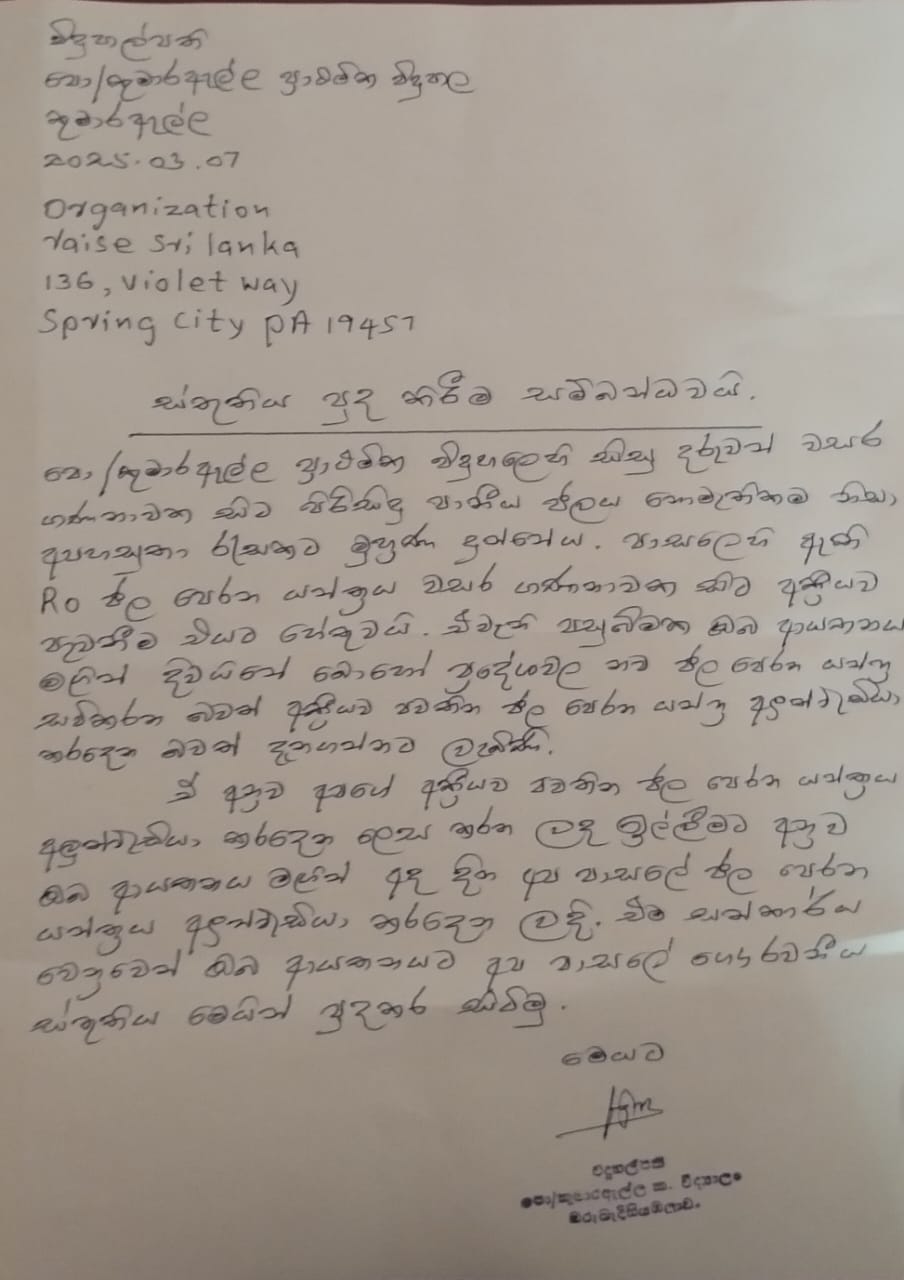 විදුහල්පති
පො/කුමාරඇල්ල ප්‍රාථමික විදුහල
කුමාරඇල්ල
2025.03.07
Organization
raise Sri lanka
136, violet way
Spring City PA 19457
ස්තුතිය පුද කිරීම සම්බන්ධවයි.
පො/කුමාරඇල්ල ප්‍රාථමික විදුහලෙහි සිසු දරුවන් වසර
ගණනාවක සිට පිරිසිදු පානීය ජලය නොමැතිකම නිසා
අපහසුතා රැසකට මුහුණ දුන්නේය. පාසලෙහි ඇති
Ro ජල පෙරන යන්ත්‍රය වසර ගණනාවක සිට අක්‍රීයව
පැවතීම එයට හේතුවයි. එවැනි පසුබිමක ඔබ ආයතනය
මගින් දිවයිනේ බොහෝ ප්‍රදේශවල නව ජල පෙරන යන්ත්‍ර
සවිකරන බවත් අක්‍රීයව පවතින ජල පෙරන යන්ත්‍ර අළුත්වැඩියා
කරදෙන බවත් දැනගන්නට ලැබිණි.
ඒ අනුව අපගේ අක්‍රීයව පවතින ජල පෙරන යන්ත්‍රය
අළුත්වැඩියා කරදෙන ලෙස කරන ලද ඉල්ලීමට අනුව
ඔබ ආයතනය මගින් අද දින අප පාසලේ ජල පෙරන
යන්ත්‍රය අළුත්වැඩියා කරදෙන ලදි. එම සත්කාර්ය
වෙනුවෙන් ඔබ ආයතනයට අප පාසලේ ගෞරවනීය
ස්තුතිය මෙයින් පුදකර සිටිමු.
මෙයට
විදුහල්පති
පො/කුමාරඇල්ල ක. විද්‍යාලය